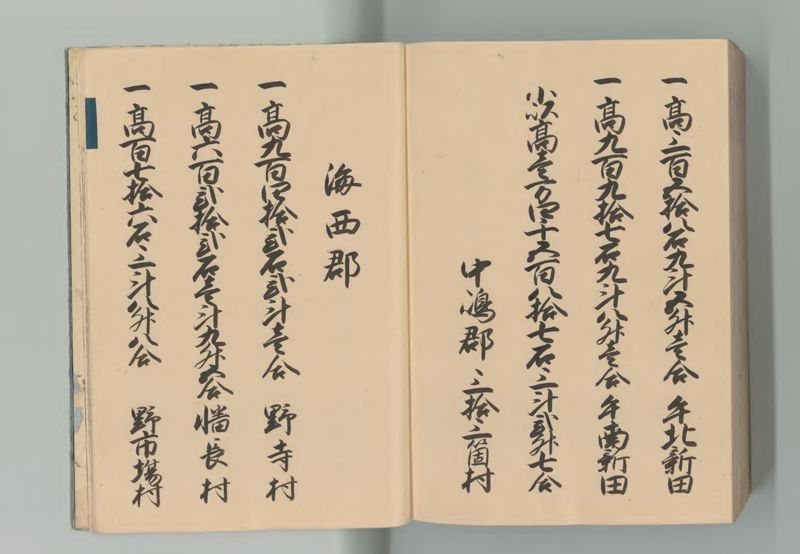 一高三百五拾八石九斗五升壱合 午北新田
一高九百九拾七石九斗八升壱合 午南新田
小以高壱万四千五百八拾七石三斗弐升七合
中嶋郡三拾三箇村
海西郡
一高九百四拾弐石弐斗壱合 野寺村
一高六百弐拾弐石壱斗九升五合 幡長村
一高百七拾六石三斗八升八合 野市場村